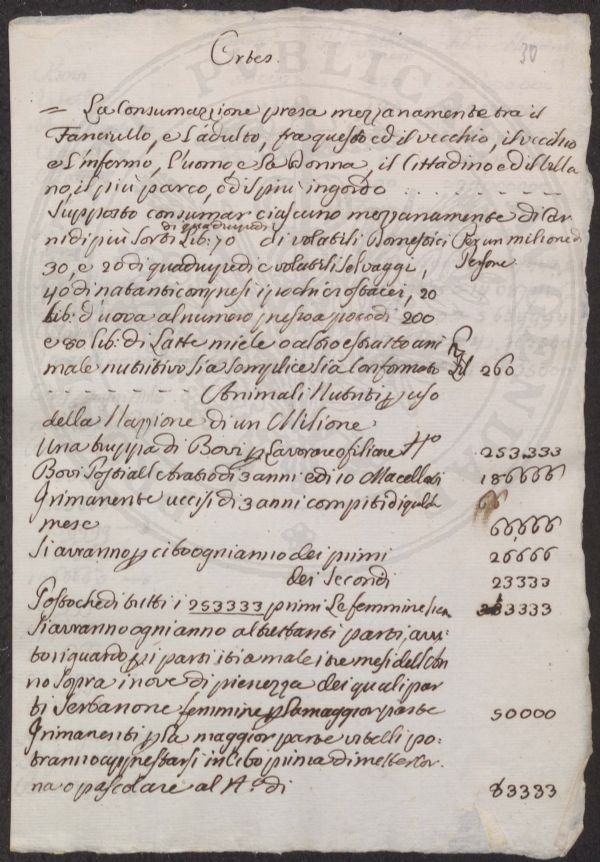 Ortes.
30
= La Consumazione presa mezzanamente tra il
Fanciullo, e l'adulto, fra questo ed il vecchio, il vecchio
e l'infermo, l'uomo e la donna, il Cittadino ed il Villa
no, il più parco, ed il più ingordo . . . . . . . . .
Supposto consumar ciascuno mezzanamente di Car
di quadrupedi
ni di più sorti Lib: 70 di volatili domestici Per un milione di
30, e 20 di quadrupedi e volatili selvaggi, Persone
40 di natanti compresi i pochi crostacei, 20
Lib: d'uova al numero presso a poco di 200
e 80 lib: di Latte miele o altro estratto ani
male nutritivo sia semplice sia conformato 260
- - - - - - - Animali Nutriti p uso
della Nazione di un Milione
Una truppa di Bovi p Lavoro e figliare N.o 253,333
Bovi Posti all'Aratro di 3 anni ed i 10 Macellati 186666
I rimanente uccisi di 3 anni compiti di qualche
66
mese 66,666
Si avranno p cibo ogni anno dei primi 26666
dei Secondi 23333
Posto che di tutti i 253333 primi Le femmine sien 3333
Si avranno ogni anno altrettanti parti, avu:
to riguardo p i parti iti a male i tre mesi dell'An
no sopra i nove di pienezza dei quali par
ti serbanone femmine p la maggior parte 50000
I rimanenti p la maggior parte vitelli po:
tranno apprestarsi in Cibo prima di metter Cor.
na o pascolare al N.o di 83333